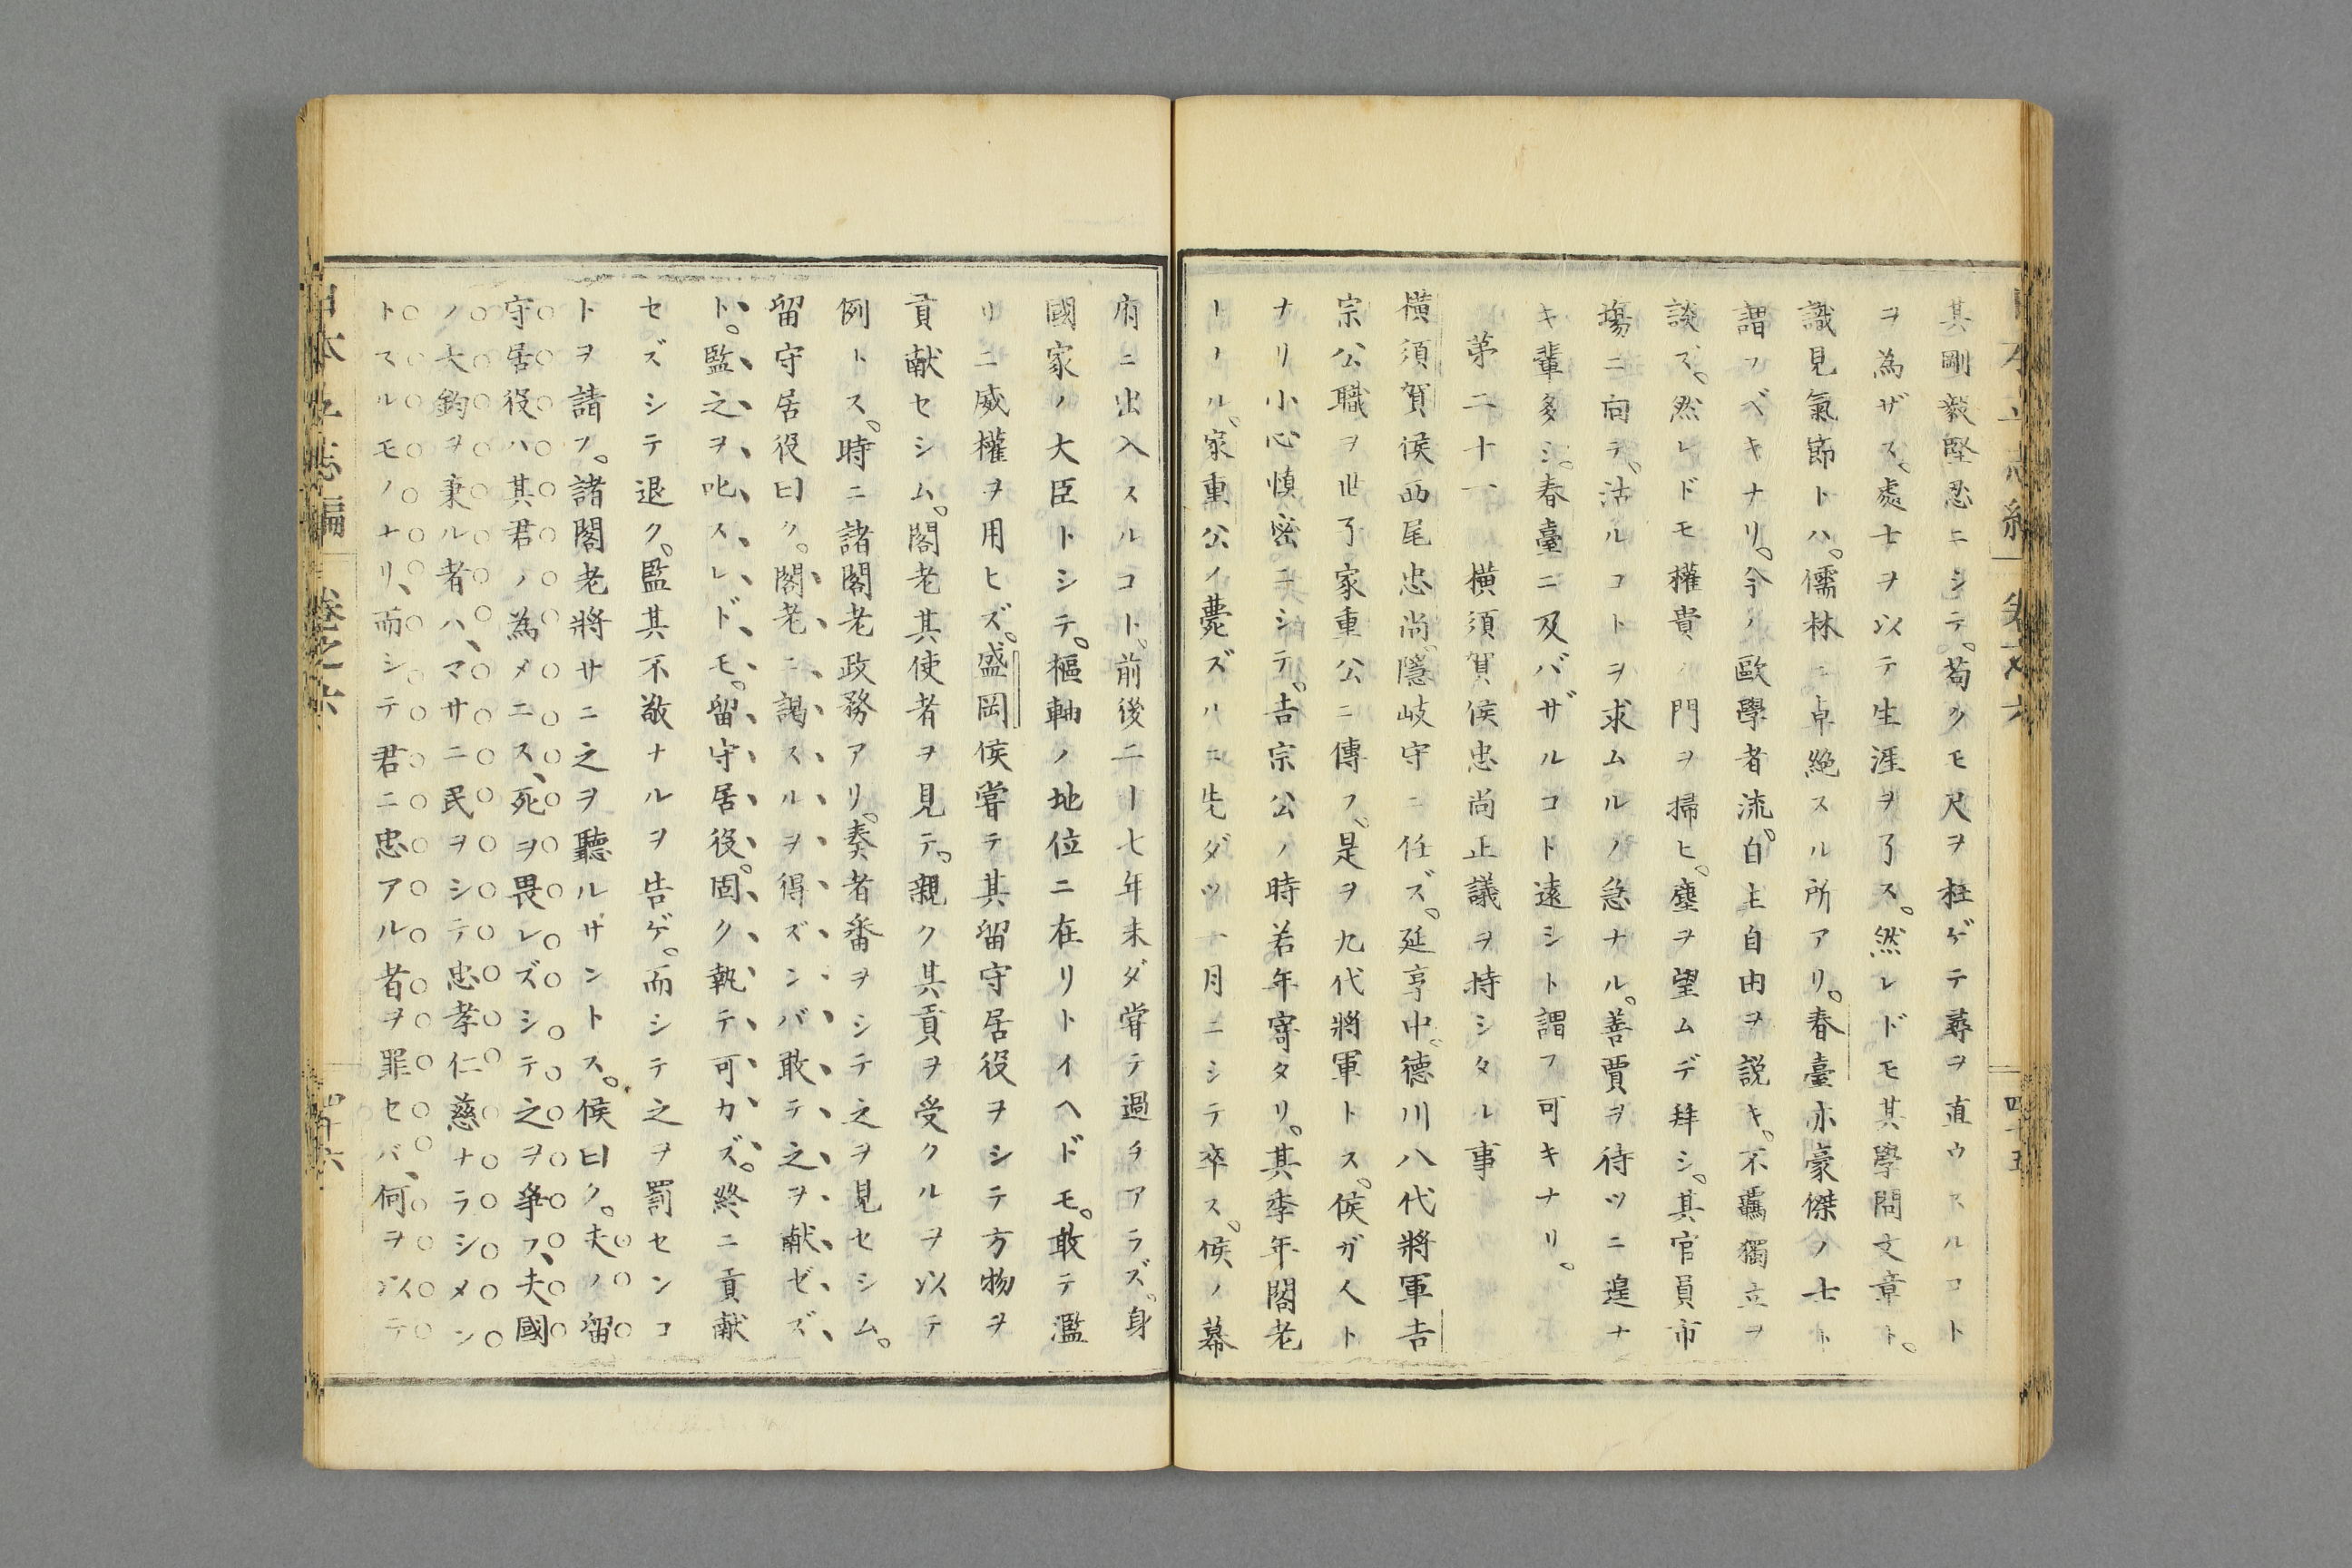 其剛毅堅忍ニシテ。苟クモ尺ヲ枉ゲテ尋ヲ直ウスルコト
ヲ為ザス。處士ヲ以テ生涯ヲ了ス。然レドモ其學問文章ト。
識見氣節トハ。儒林ニ卓絶スル所アリ。春臺亦豪傑ノ士ト
謂フベキナリ。今ノ歐學者流。自主自由ヲ説キ。不羈獨立ヲ
談ズ。然レドモ權貴ノ門ヲ掃ヒ。塵ヲ望ムデ拜シ。其官員市
塲ニ向テ。沽ルコトヲ求ムルノ急ナル。善賈ヲ待ツニ遑ナ
キ輩多シ。春臺ニ及バザルコト遠シト謂フ可キナリ。
第二十一 横須賀侯忠尚正議ヲ持シタル事
横須賀侯西尾忠尚。隱岐守ニ任ズ。延享中。德川八代將軍吉
宗公職ヲ世子家重公ニ傳フ。是ヲ九代將軍トス。侯ガ人ト
ナリ小心愼密ニシテ。吉宗公ノ時若年寄タリ。其季年閣老
トノル。家重公ノ薨ズルニ先ダツ一月ニシテ卒ス。侯ノ幕
府ニ出入スルコト。前後二十七年未ダ嘗テ過チアラズ。身
國家ノ大臣トシテ。樞軸ノ地位ニ在リトイヘドモ。敢テ濫
リニ威權ヲ用ヒズ。盛岡侯嘗テ其留守居役ヲシテ方物ヲ
貢献セシム。閣老其使者ヲ見テ。親ク其貢ヲ受クルヲ以テ
例トス。時ニ諸閣老政務アリ。奏者番ヲシテ之ヲ見セシム。
留守居役曰ク。閣老ニ謁スルヲ得ズンバ敢テ之ヲ献ゼズ
ト。監之ヲ叱スレドモ。留守居役。固ク執テ可カズ。終ニ貢献
セズシテ退ク。監其不敬ナルヲ告ゲ。而シテ之ヲ罰センコ
トヲ請フ。諸閣老將サニ之ヲ聽ルサントス。候曰ク。夫ノ留
守居役ハ其君ノ為メニス、死ヲ畏レズシテ之ヲ爭フ、夫國
ノ大鈞ヲ秉ル者ハ、マサニ民ヲシテ忠孝仁慈ナラシメン
トスルモノナリ、而シテ君ニ忠アル者ヲ罪セバ、何ヲ以テ
日本立志編 卷之六 四十六